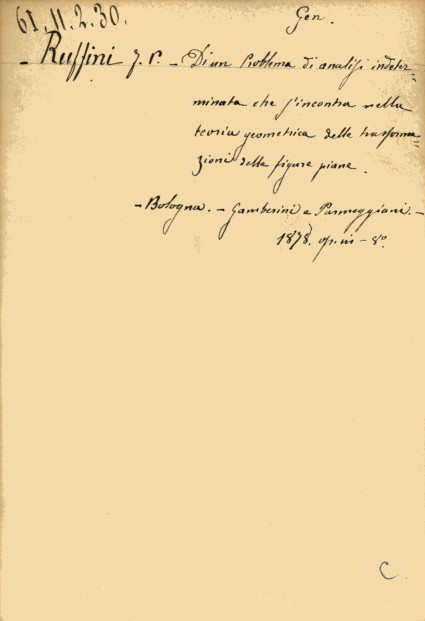 61.11.2.30.
Gen.
- Ruffini F. P. - Di un Problema di analisi indeter=
minata che s'incontra nella
teoria geometrica delle trasforma=
zioni delle figure piane.
- Bologna. - Gamberini e Parmeggiani. -
1878. op. in - 8º.
C